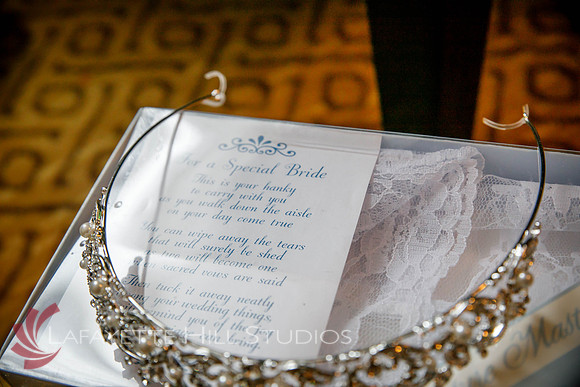 For a Special Bride
This is your hanky
to carry with you
as you walk down the aisle
on your day come true
You can wipe away the tears
that will surely be shed
we will become one
sacred vows are said
Then tuck it away neatly
your wedding things,
remind
bring.
LAFAYETTE HILL STUDIOS
Mast